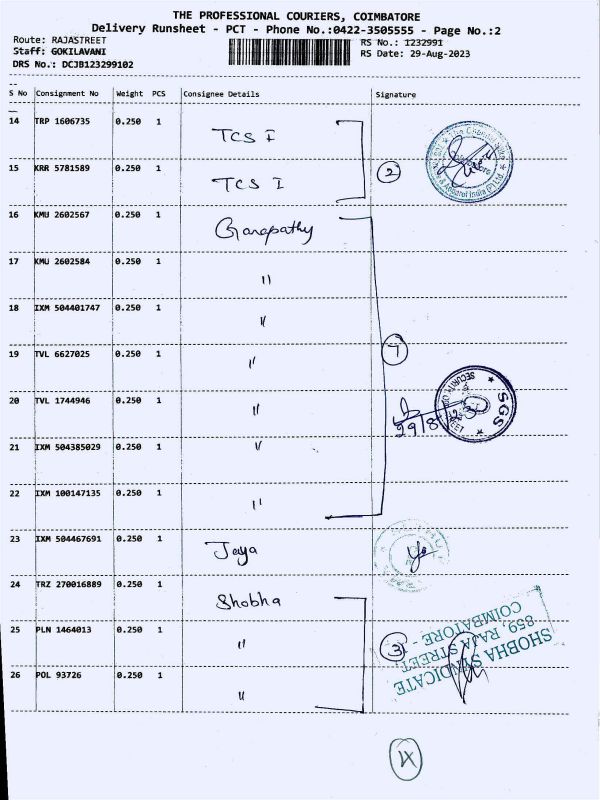 THE PROFESSIONAL COURIERS, COIMBATORE
Delivery Runsheet - PCT - Phone No.:0422-3505555 - Page No.:2
Route: RAJASTREET
RS No.: 1232991
Staff: GOKILAVANI
RS Date: 29-Aug-2023
DRS No.: DCJB123299102
S No Consignment No Weight PCS Consignee Details Signature
14 TRP 1606735 0.250 1 TCS I
15 KRR 5781589 0.250 1 TCS I
2
16 KMU 2602567 0.250 1 Ganapathy
17 KMU 2602584 0.250 1 "
18 IXM 504401747 0.250 1 "
19 TVL 6627025 0.250 1 "
7
20 TVL 1744946 0.250 1 "
29/8
SGS
21 IXM 504385029 0.250 1 "
22 IXM 100147135 0.250 1 "
23 IXM 504467691 0.250 1 Jaya
24 TRZ 270016889 0.250 1 Shobha
25 PLN 1464013 0.250 1 "
3
26 POL 93726 0.250 1 "
SHOBHA SYNDICATE
859, RAJA STREET
COIMBATORE -